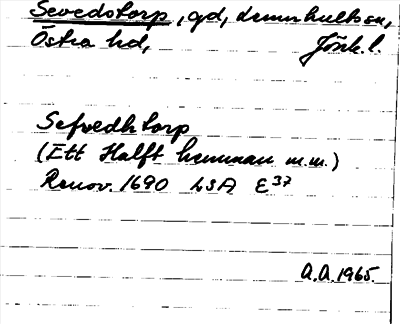 Sevedstorp, gd, Lemnhults sn,
Östra hd, Jönk.l.
Sefvedhtorp
(Ett Halft hemman m.m.)
Renov. 1690 LSA E37
A.A. 1965.